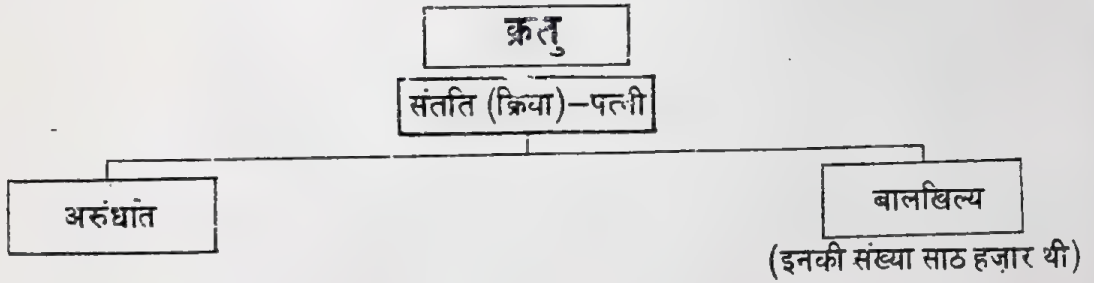 क्रतु
संतति (क्रिया)–पत्नी
अरुंधांत
बालखिल्य
(इनकी संख्या साठ हज़ार थी)